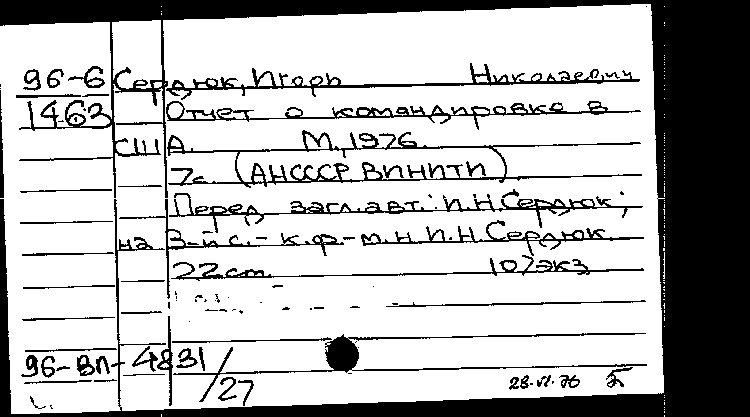 96-6 Сердюк, Игорь Николаевич
1463 Отчет о командировке в
США. М., 1976.
7с. (АН СССР ВИНИТИ).
Перед загл. авт.: И.Н. Сердюк;
на 3-й с. - к.ф.-м.н. И.Н. Сердюк.
22 см. 107 экз
96-ВЛ-4831/27
28.VI.76